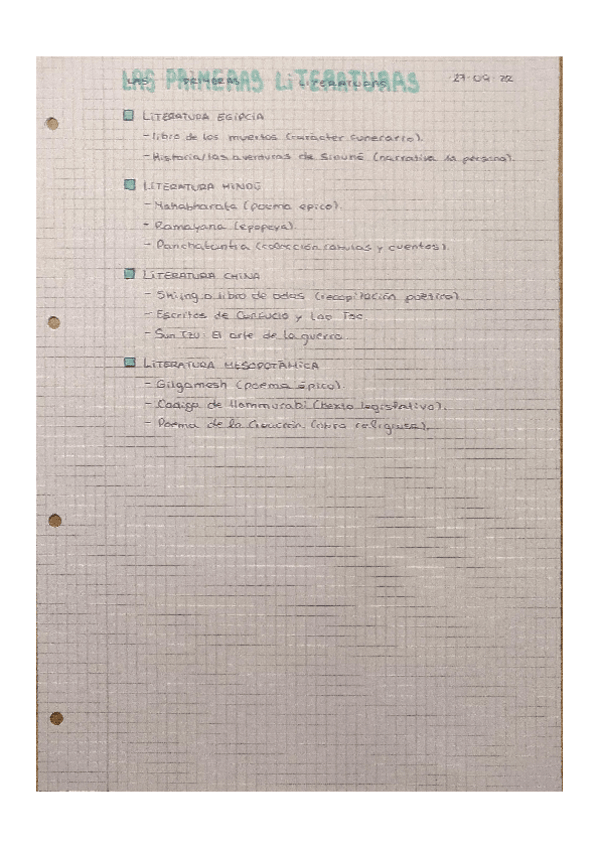 LAS PRIMERAS LITERATURAS
LAS PRIMERAS LITERATURAS
27·09·22
LITERATURA EGIPCIA
- libro de los muertos (carácter funerario).
- Historia/las aventuras de Sinuhé (narrativa 1a persona).
LITERATURA HINDÚ
- Mahabharata (poema épico).
- Ramayana (epopeya).
- Panchatantra (colección fábulas y cuentos).
LITERATURA CHINA
- Shijing o libro de odas (recopilación poética)
- Escritos de Confucio y Lao Tse
- Sun Tzu: El arte de la guerra
LITERATURA MESOPOTÁMICA
- Gilgamesh (poema épico).
- Código de Hammurabi (texto legislativo).
- Poema de la Creación (libro religioso).